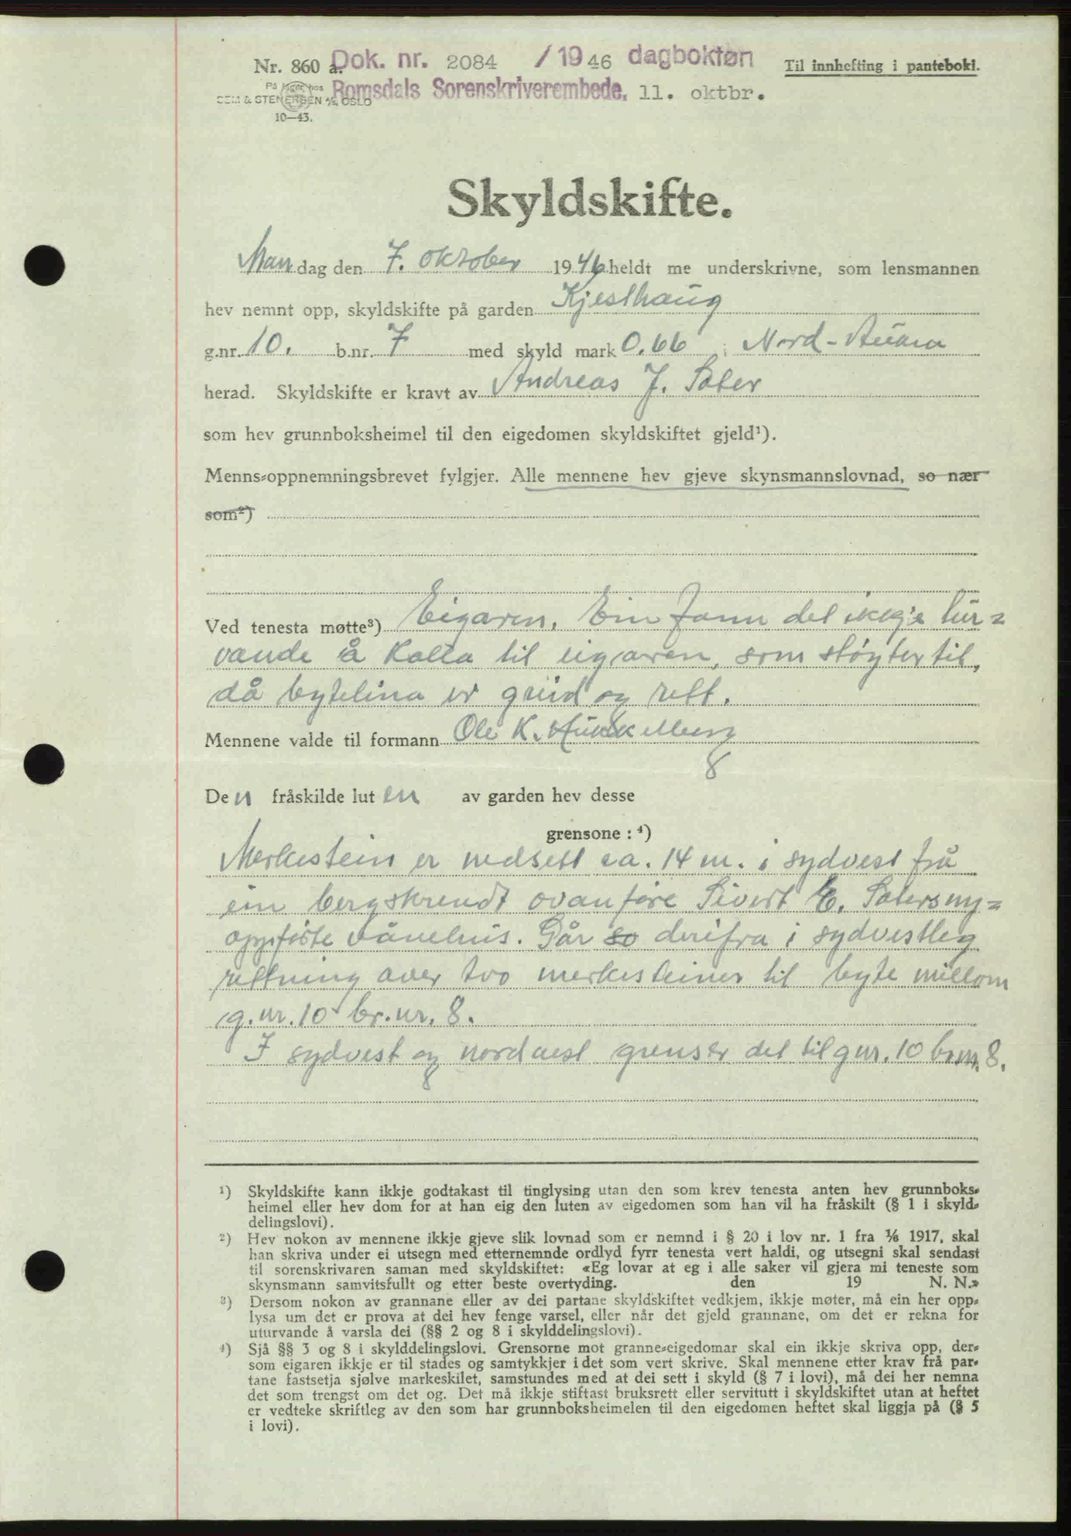 Nr. 860 a. Dok. nr. 2084 / 1946 dagboktøn Til innhefting i pantebokt.
På lager hos Romsdals Sorenskriverembede, 11. oktbr.
SEM & STENERSEN A/S OSLO
10—43.
Skyldskifte.
Mandag den 7. oktober 1946 heldt me underskrivne, som lensmannen
hev nemnt opp, skyldskifte på garden Kjeslhaug
g.nr. 10. b.nr. 7 med skyld mark 0.66 i Nord-Aukra
herad. Skyldskifte er kravt av Andreas J. Sæter
som hev grunnboksheimel til den eigedomen skyldskiftet gjeld¹).
Menns-oppnemningsbrevet fylgjer. Alle mennene hev gjeve skynsmannslovnad, so nær
som²)
Ved tenesta møtte³) Eigaren. Ein fann det ikkje tur-
vande å kalla til eigaren, som støyter til,
då bytelina er greid og rett.
Mennene valde til formann Ole K.
Den fråskilde luten av garden hev desse
grensone : ⁴)
Merkestein er nedsett ca. 14 m. i sydvest frå
ein bergskrendt ovanføre Sivert E. Sæters ny-
oppførte vånehus. Går so derifra i sydvestleg
rettning over tvo merkesteiner til byte millom
g.nr. 10 br.nr. 8.
I sydvest og nordvest grenser det til gnr. 10 br.nr. 8.
¹) Skyldskifte kann ikkje godtakast til tinglysing utan den som krev tenesta anten hev grunnboks-
heimel eller hev dom for at han eig den luten av eigedomen som han vil ha fråskilt (§ 1 i skyld-
delingslovi).
²) Hev nokon av mennene ikkje gjeve slik lovnad som er nemnd i § 20 i lov nr. 1 fra ⅙ 1917, skal
han skriva under ei utsegn med etternemnde ordlyd fyrr tenesta vert haldi, og utsegni skal sendast
til sorenskrivaren saman med skyldskiftet: «Eg lovar at eg i alle saker vil gjera mi teneste som
skynsmann samvitsfullt og etter beste overtyding. den 19 N. N.»
³) Dersom nokon av grannane eller av dei partane skyldskiftet vedkjem, ikkje møter, må ein her opp-
lysa um det er prova at dei hev fenge varsel, eller når det gjeld grannane, om det er rekna for
uturvande å varsla dei (§§ 2 og 8 i skylddelingslovi).
⁴) Sjå §§ 3 og 8 i skylddelingslovi. Grensorne mot granne-eigedomar skal ein ikkje skriva opp, der-
som eigaren ikkje er til stades og samtykkjer i det som vert skrive. Skal mennene etter krav frå par-
tane fastsetja sjølve markeskilet, samstundes med at dei sett i skyld (§ 7 i lovi), må dei her nemna
det som trengst om det og. Det må ikkje stiftast bruksrett eller servitutt i skyldskiftet utan at heftet
er vedteke skriftleg av den som har grunnboksheimelen til den eigedomen heftet skal liggja på (§ 5
i lovi).